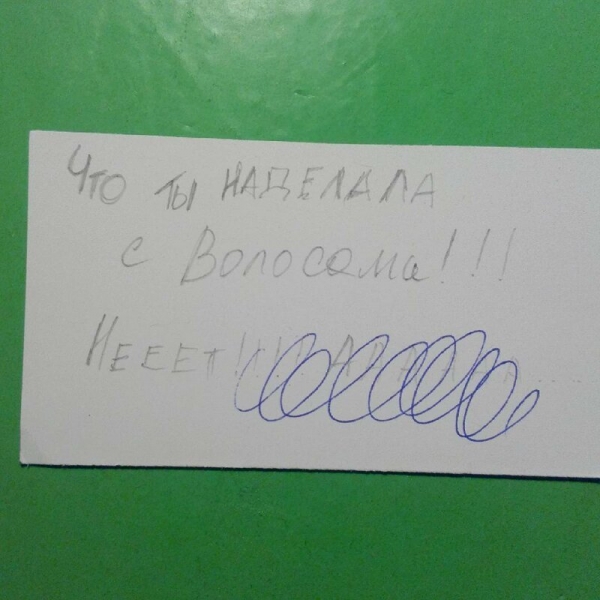 Что ты НАДЕЛАЛА
с Волосама!!!
Нееет!!!